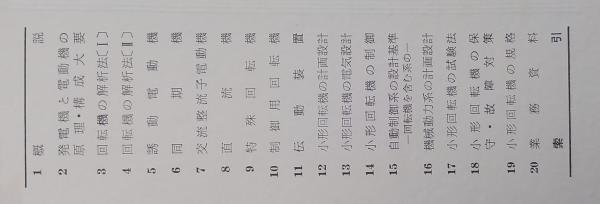 1 概説
2 発電機と電動機の
原理・構成大要
3 回転機の解析法〔Ⅰ〕
4 回転機の解析法〔Ⅱ〕
5 誘導電動機
6 同期機
7 交流整流子電動機
8 直流機
9 特殊回転機
10 制御用回転機
11 伝動装置
12 小形回転機の計画設計
13 小形回転機の電気設計
14 小形回転機の制御
15 自動制御系の設計基準
―回転機を含む系の―
16 機械動力系の計画設計
17 小形回転機の試験法
18 小形回転機の保
守・故障対策
19 小形回転機の規格
20 業務資料
索引